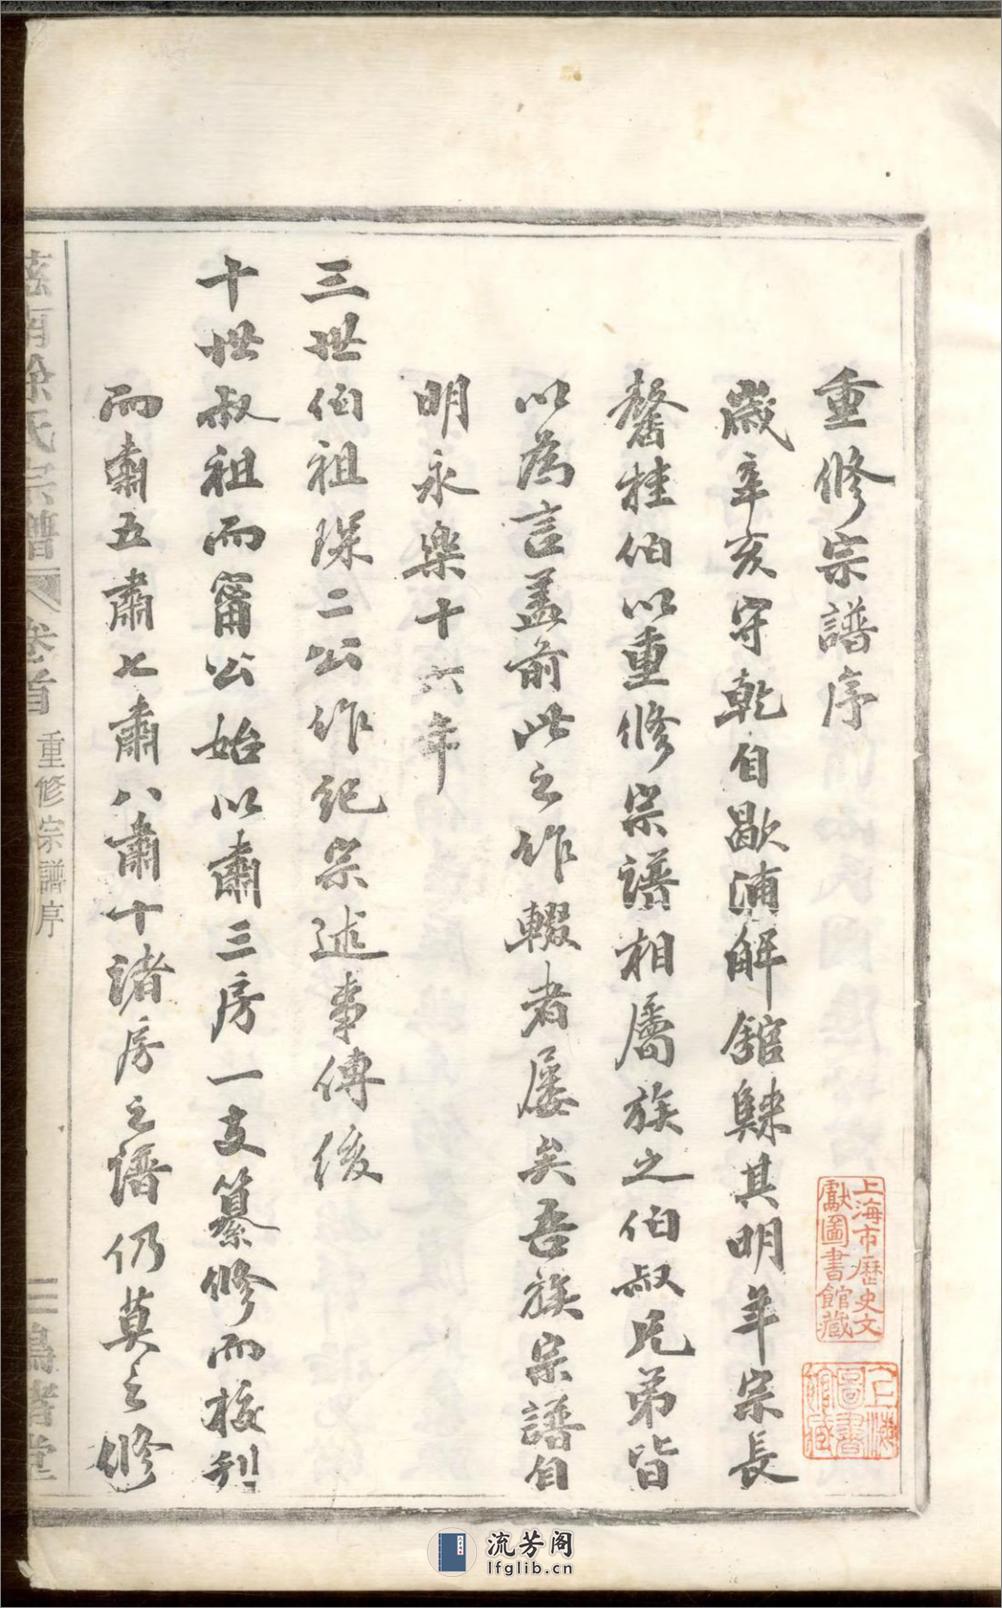 重修宗譜序
歲辛亥守乾自歇浦解館歸其明年宗長
馨桂伯以重修宗譜相屬族之伯叔兄弟皆
以為言蓋前此之作輟者屢矣吾族宗譜自
明永樂十六年
三世伯祖琛二公作紀宗述事傳後
十世叔祖而甯公始以肅三房一支纂修而校刋
而肅五肅七肅八肅十諸房之譜仍莫之修
南徐氏宗譜
卷首
重修宗譜序
二
堂
上海市歷史文獻圖書館藏
上海圖書館藏
流芳阁
lfglib.cn